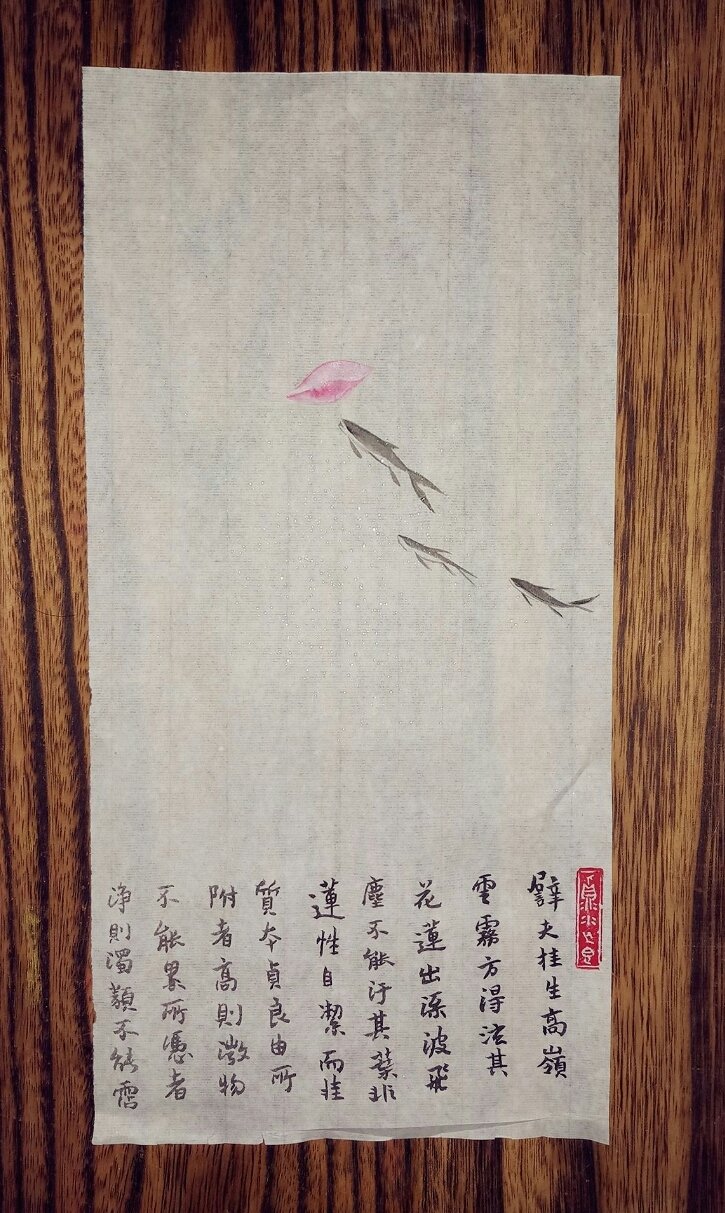 譬夫桂生高嶺
雲霧方得泫其
花蓮出淥波飛
塵不能汙其葉非
蓮性自潔而桂
質本貞良由所
附者高則微物
不能累所憑者
淨則濁類不能霑